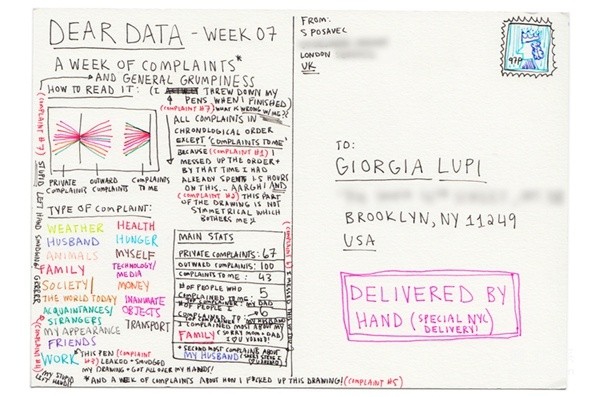 DEAR DATA - WEEK 07
A WEEK OF COMPLAINTS*
AND GENERAL GRUMPINESS
HOW TO READ IT: (I THREW DOWN MY
4 PENS WHEN I FINISHED)
(COMPLAINT #7) WHAT IS WRONG W/ME?
ALL COMPLAINTS IN
CHRONOLOGICAL ORDER
EXCEPT 'COMPLAINTS TO ME'
BECAUSE (COMPLAINT #1) I
MESSED UP THE ORDER +
BY THAT TIME I HAD
ALREADY SPENT 1.5 HOURS
ON THIS.. AARGH! AND
(COMPLAINT #2) THIS PART
OF THE DRAWING IS NOT
SYMMETRICAL WHICH
BOTHERS ME
PRIVATE COMPLAINTS
OUTWARD COMPLAINTS
COMPLAINTS TO ME
(COMPLAINT #7) STUPID LEFT HAND SMUDGING
TYPE OF COMPLAINT:
WEATHER
HUSBAND
ANIMALS
FAMILY
SOCIETY/
THE WORLD TODAY
ACQUAINTANCES/
STRANGERS
MY APPEARANCE
FRIENDS
WORK
HEALTH
HUNGER
MYSELF
TECHNOLOGY/
MEDIA
MONEY
INANIMATE
OBJECTS
TRANSPORT
MAIN STATS
PRIVATE COMPLAINTS: 67
OUTWARD COMPLAINTS: 100
COMPLAINTS TO ME: 43
# OF PEOPLE WHO
COMPLAINED TO ME: 5
TOP COMPLAINER: MY DAD
# OF PEOPLE I
COMPLAINED TO: 6
MY HUSBAND
I COMPLAINED MOST ABOUT MY
FAMILY (SORRY MOM + DAD)
I ♥ U
*SECOND MOST COMPLAINED ABOUT
MY HUSBAND
*THIS PEN (COMPLAINT
LEAKED + SMUDGED
MY DRAWING + GOT ALL OVER MY HANDS!
MY STUPID
LEFT HAND!!
*AND A WEEK OF COMPLAINTS ABOUT HOW I F*CKED UP THIS DRAWING! (COMPLAINT #5)
FROM:
S POSAVEC
LONDON
UK
97P
TO:
GIORGIA LUPI
BROOKLYN, NY 11249
USA
DELIVERED BY
HAND (SPECIAL NYC
DELIVERY!)